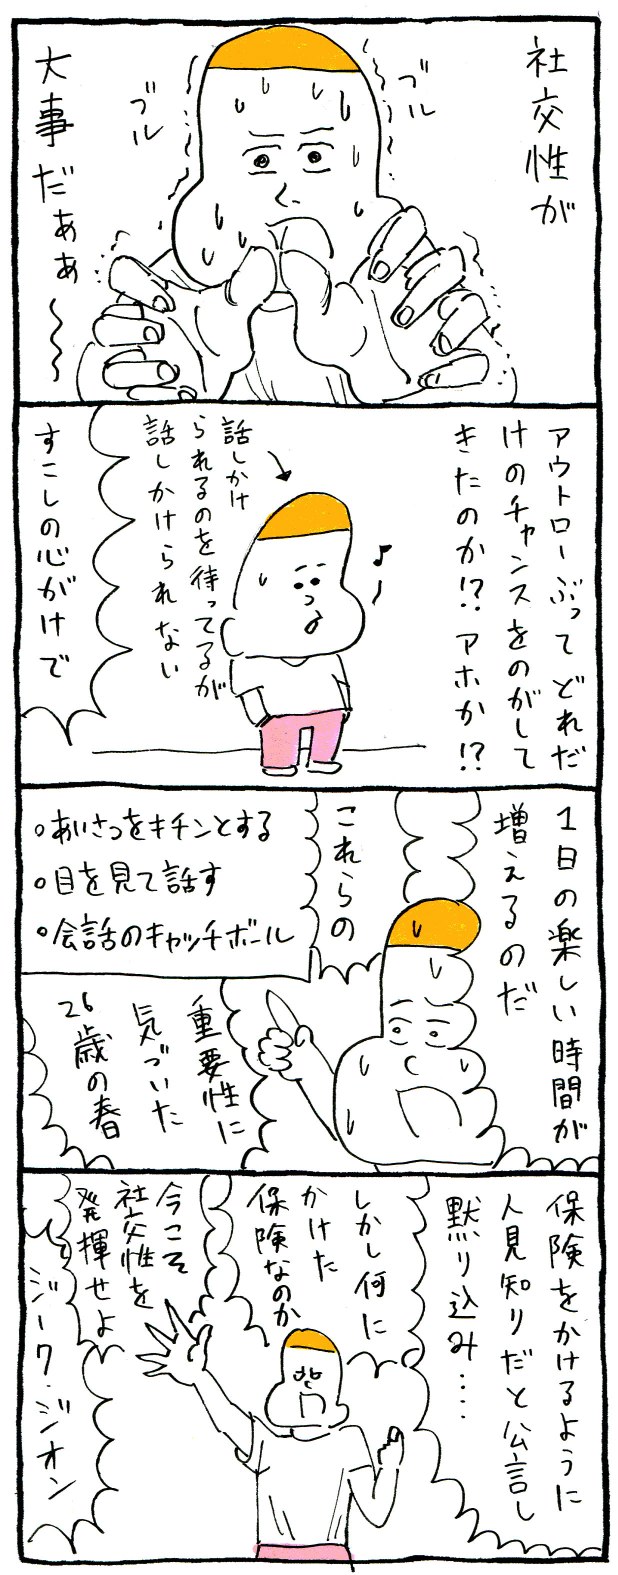 社交性が
ブル
ブル
大事だぁぁ〜
アウトローぶってどれだ
けのチャンスをのがして
きたのか!?アホか!?
話しかけ
られるのを待ってるが
話しかけられない
すこしの心がけで
1日の楽しい時間が
増えるのだ
これらの
。あいさつをキチンとする
。目を見て話す
。会話のキャッチボール
重要性に
気づいた
26歳の春
保険をかけるように
人見知りだと公言し
黙り込み....
しかし何に
かけた
保険なのか
今こそ
社交性を
発揮せよ
ジーク・ジオン